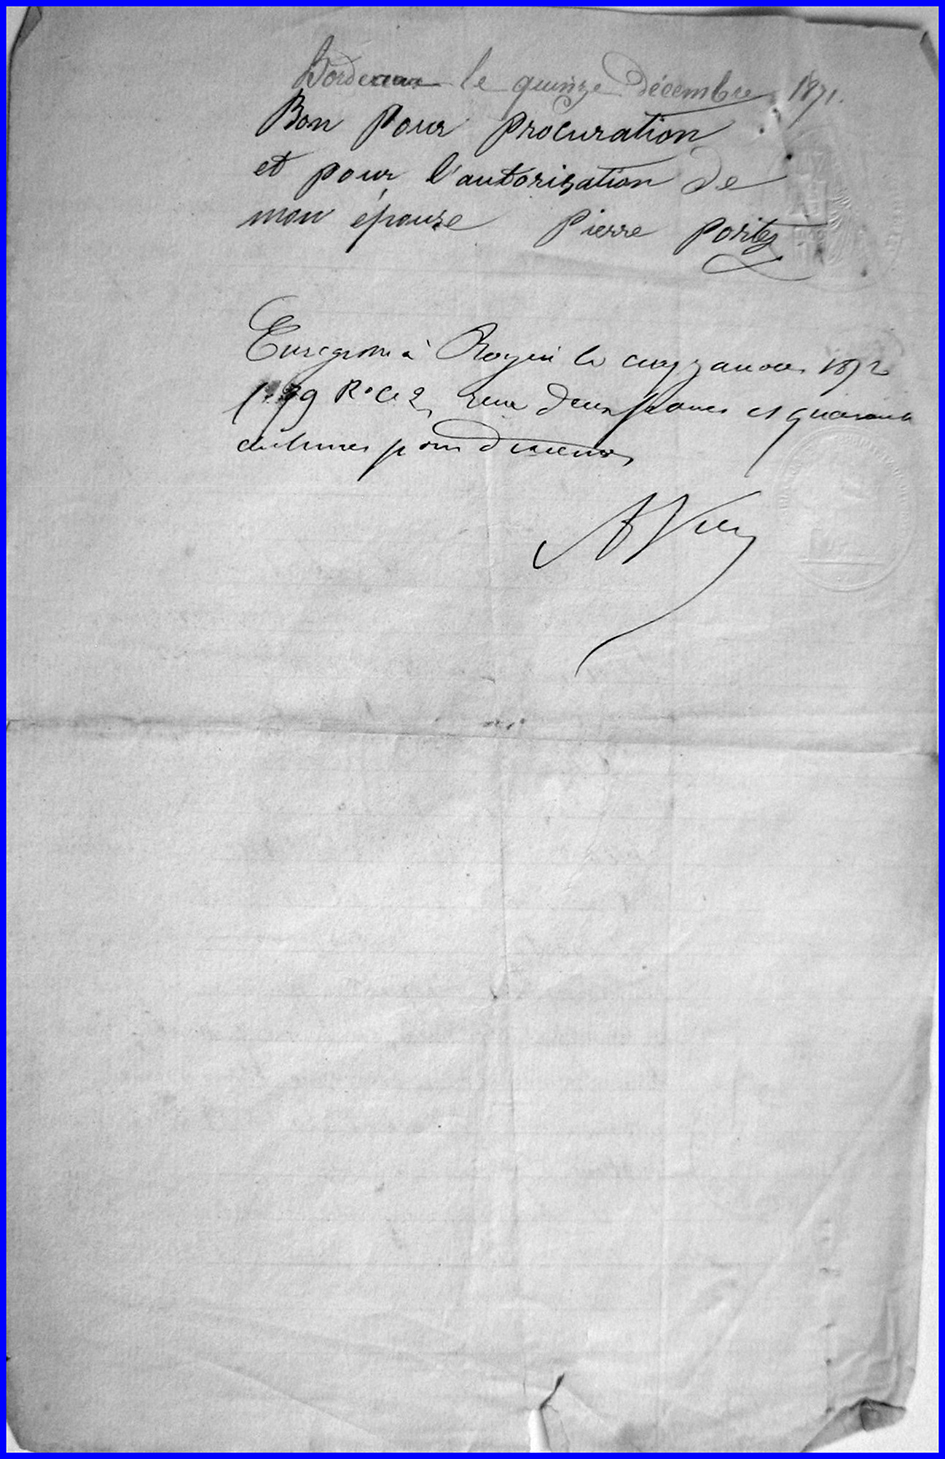 Bordeaux le quinze décembre 1871.
Bon pour procuration
et pour l'autorisation de
mon épouse Pierre Portez
Enregistré à Royan le cinq janvier 1872
f. 79 R. C. 2, Reçu deux francs et quarante
centimes pour décimes